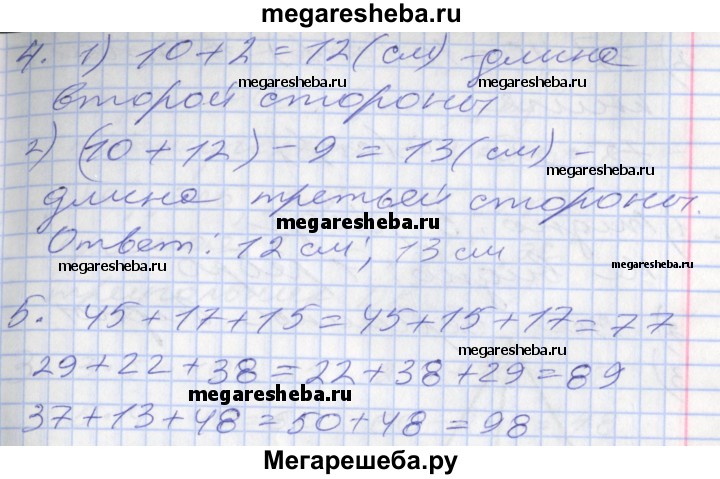 megaresheba.ru
4. 1) 10+2=12(см) - длина
megaresheba.ru
megaresheba.ru
второй стороны
2) (10+12)-9=13(см) -
megaresheba.ru
длина третьей стороны.
megaresheba.ru
Ответ: 12 см; 13 см
megaresheba.ru
megaresheba.ru
5. 45+17+15=45+15+17=77
megaresheba.ru
29+22+38=22+38+29=89
megaresheba.ru
37+13+48=50+48=98
Мегарешеба.ру